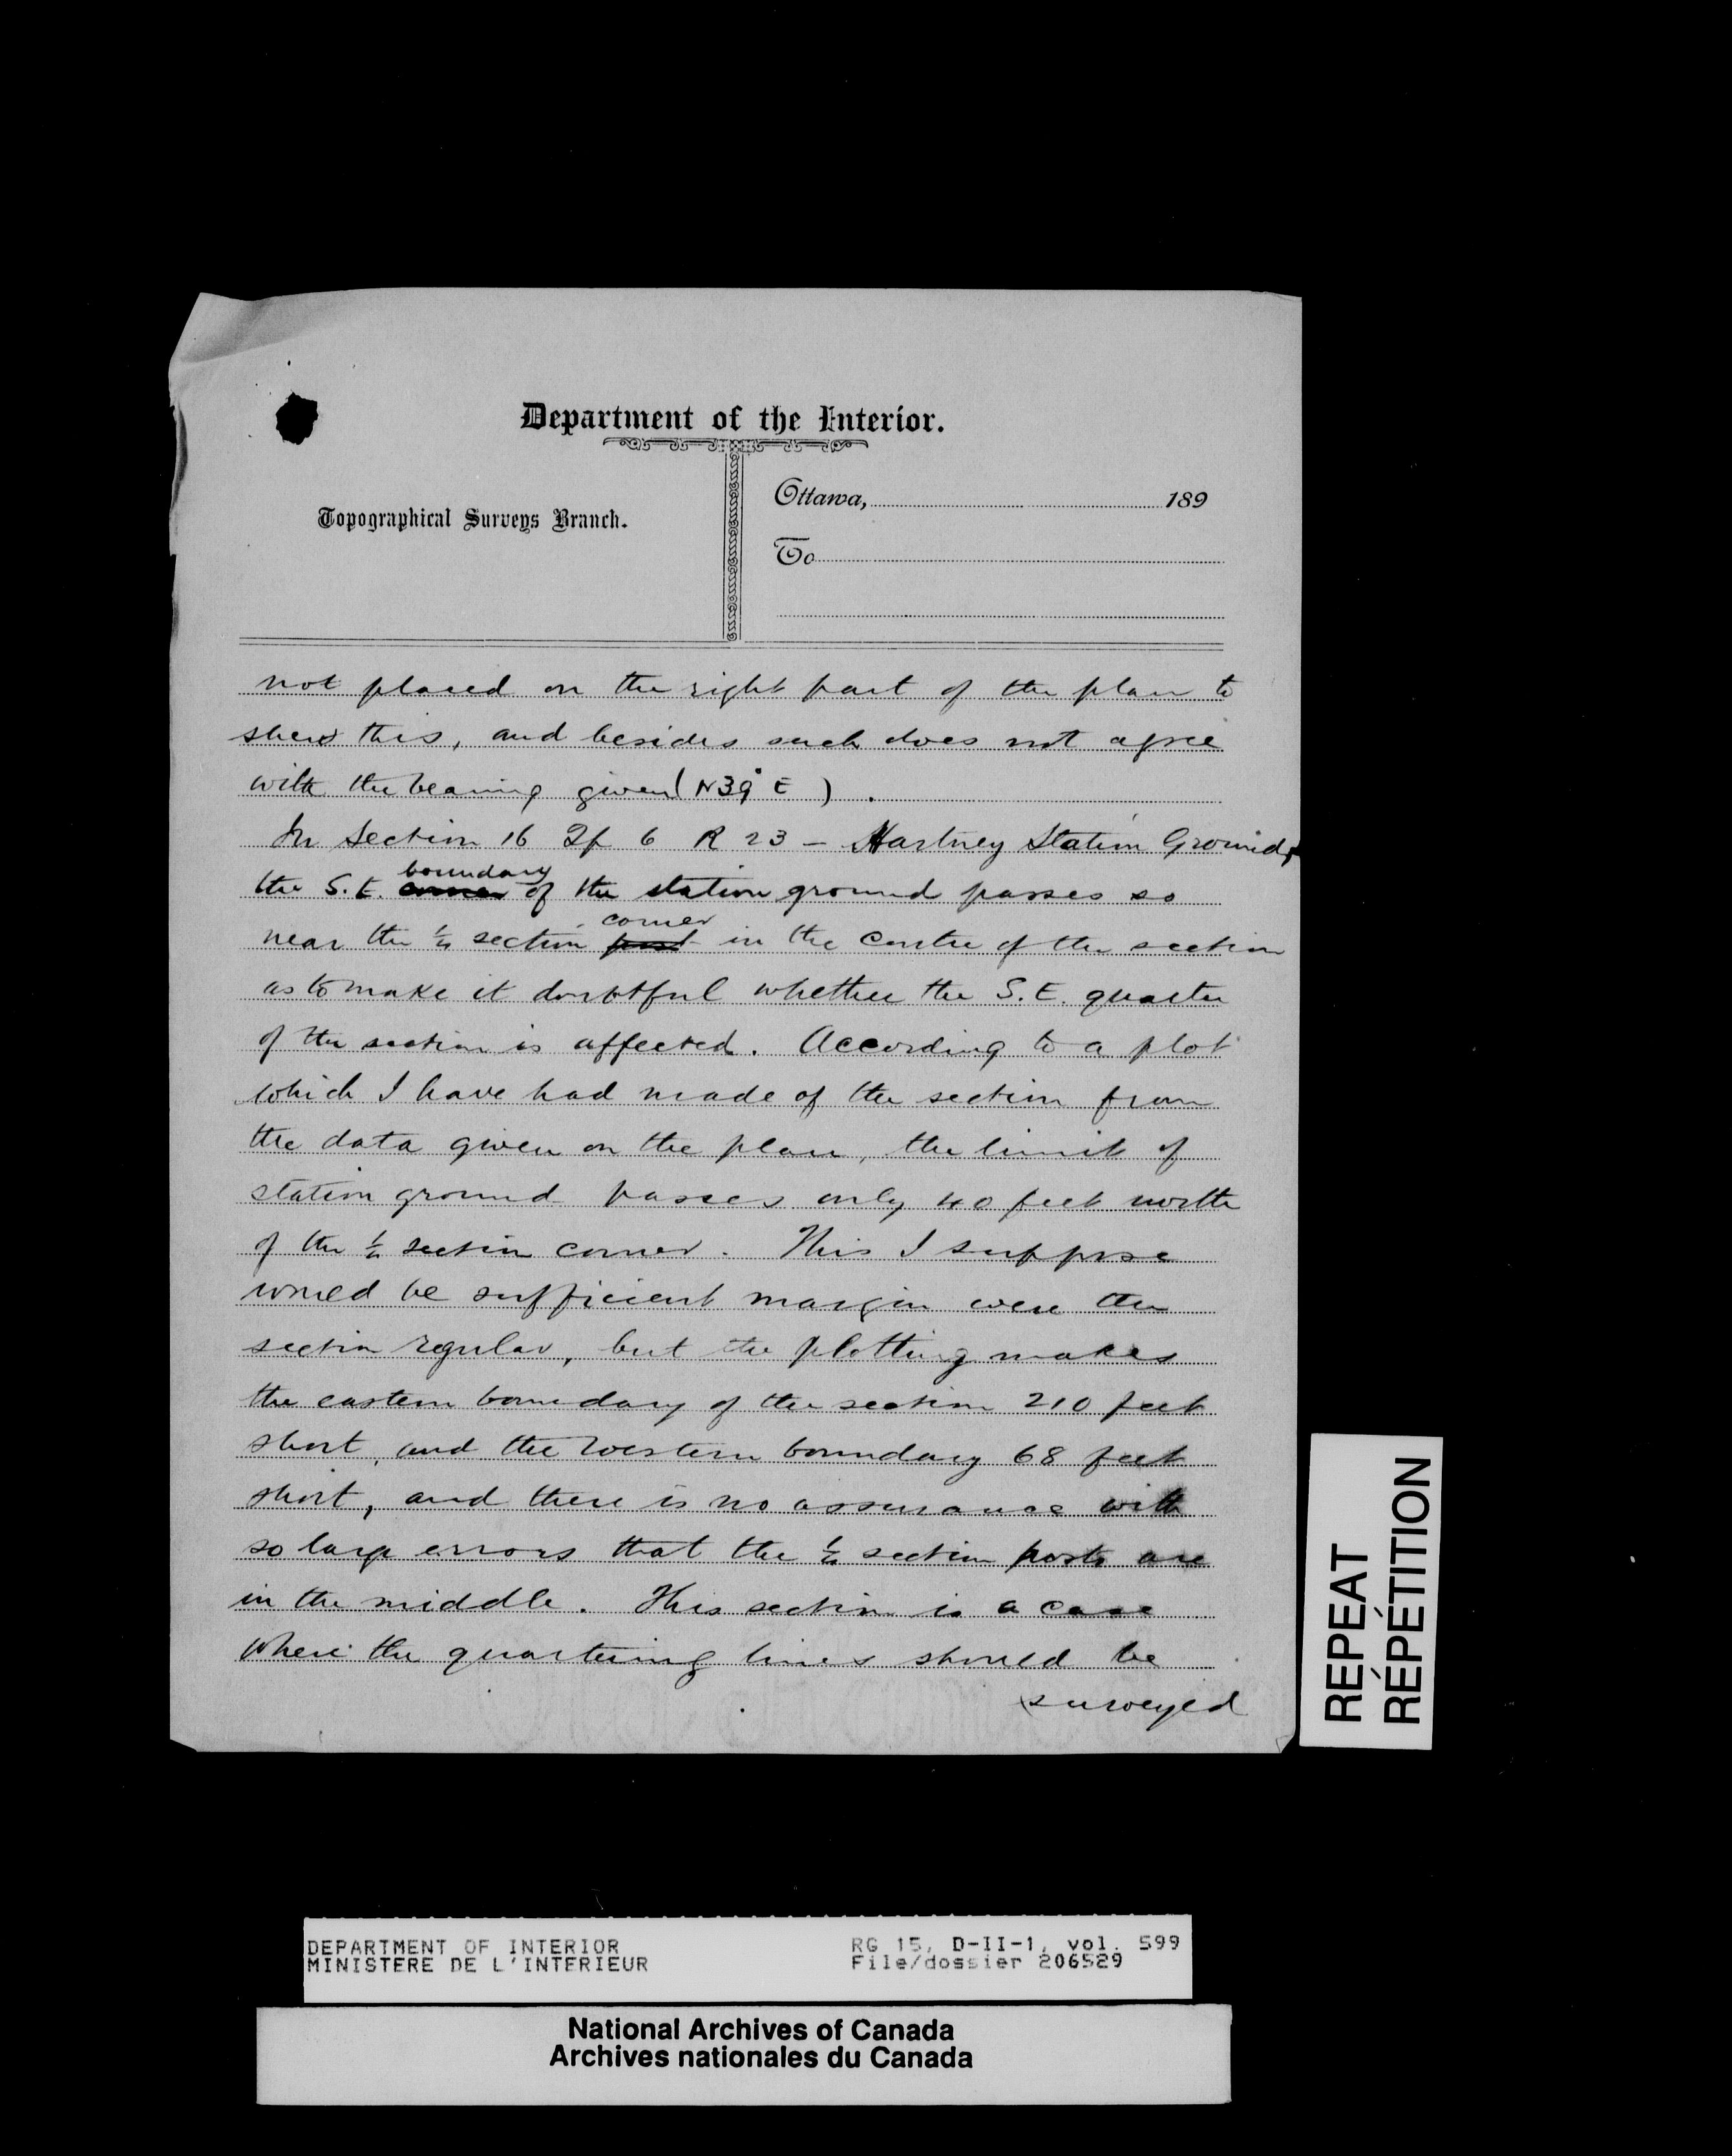 Department of the Interior.
Topographical Surveys Branch.
Ottawa, 189
To
not placed on the right part of the plan to
shew this, and besides such does not agree
with the bearing given (N39° E).
In Section 16 Tp 6 R 23 – Hartney Station Grounds,
the S.E. corner boundary of the station ground passes so
near the ¼ section post corner in the centre of the section
as to make it doubtful whether the S.E. quarter
of the section is affected. According to a plot
which I have had made of the section from
the data given on the plan, the limit of
station ground passes only 40 feet north
of the ¼ section corner. This I suppose
would be sufficient margin were the
section regular, but the plotting makes
the eastern boundary of the section 210 feet
short, and the western boundary 68 feet
short, and there is no assurance with
so large errors that the ¼ section posts are
in the middle. This section is a case
where the quartering lines should be
surveyed
REPEAT
RÉPÉTITION
DEPARTMENT OF INTERIOR
MINISTERE DE L'INTERIEUR
RG 15, D-II-1, vol. 599
File/dossier 206529
National Archives of Canada
Archives nationales du Canada